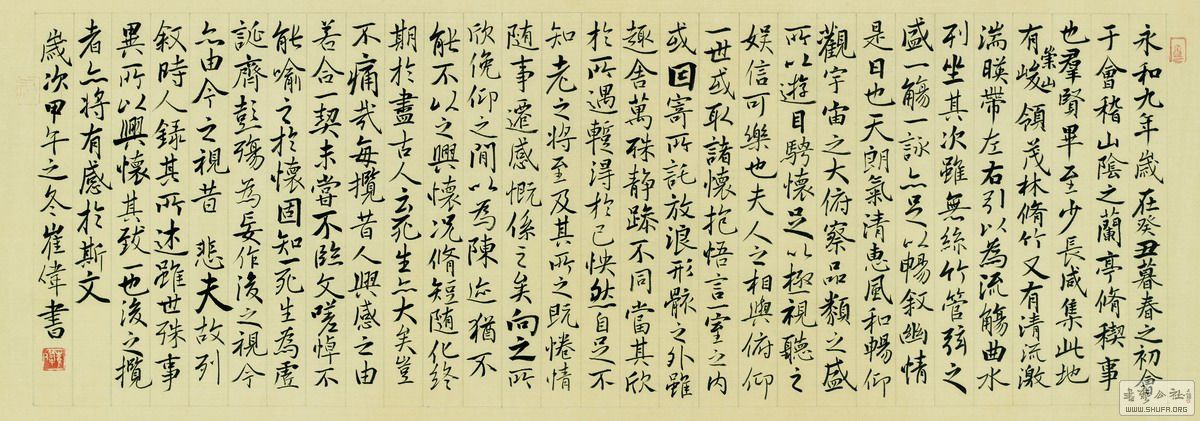 永和九年歲在癸丑暮春之初會
于會稽山陰之蘭亭脩稧事
也羣賢畢至少長咸集此地
有崇山峻領茂林脩竹又有清流激
湍暎帶左右引以為流觴曲水
列坐其次雖無絲竹管弦之
盛一觴一詠亦足以暢敘幽情
是日也天朗氣清惠風和暢仰
觀宇宙之大俯察品類之盛
所以遊目騁懷足以極視聽之
娛信可樂也夫人之相與俯仰
一世或取諸懷抱悟言一室之內
或因寄所託放浪形骸之外雖
趣舍萬殊靜躁不同當其欣
於所遇蹔得於己怏然自足不
知老之將至及其所之既惓情
隨事遷感慨係之矣向之所
欣俛仰之閒以為陳迹猶不
能不以之興懷況脩短隨化終
期於盡古人云死生亦大矣豈
不痛哉每攬昔人興感之由
若合一契未嘗不臨文嗟悼不
能喻之於懷固知一死生為虛
誕齊彭殤為妄作後之視今
亦由今之視昔 悲夫故列
敘時人錄其所述雖世殊事
異所以興懷其致一也後之攬
者亦將有感於斯文
歲次甲午之冬崔偉書
WWW.SHUFA.ORG